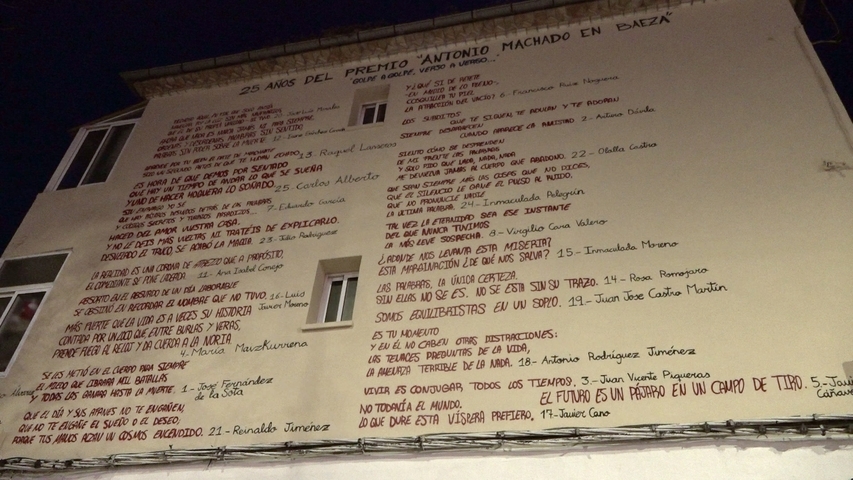 25 AÑOS DEL PREMIO "ANTONIO MACHADO EN BAEZA"
"GOLPE A GOLPE, VERSO A VERSO..."
13- Raquel Lanseros
ES HORA DE QUE DEMOS POR SENTADO
QUE HAY UN TIEMPO DE ANDAR LO QUE SE SUEÑA
Y UNO DE HACER HOGUERA LO SOÑADO. 25- Carlos Alberto
7- Eduardo García
HACED DEL AMOR VUESTRA CASA.
Y NO LE DEIS MÁS VUELTAS NI TRATÉIS DE EXPLICARLO.
DESVELADO EL TRUCO, SE ACABÓ LA MAGIA. 23- Julio Rodríguez
LA REALIDAD ES UNA CORONA DE ATREZZO QUE A PROPÓSITO,
EL COMEDIANTE SE PONE LADEADA. 11- Ana Isabel Conejo
ABSORTO EN EL ABSURDO DE UN DÍA LABORABLE
SE OBSTINÓ EN RECORDAR EL NOMBRE QUE NO TUVO. 16- Luis
Javier Moreno
MÁS FUERTE QUE LA VIDA ES A VECES SU HISTORIA
CONTADA POR UN LOCO QUE ENTRE BURLAS Y VERAS,
PRENDE FUEGO AL RELOJ Y DA CUERDA A LA NORIA.
4- María
SE LES METIÓ EN EL CUERPO PARA SIEMPRE
EL MIEDO QUE LIBRARÁ MIL BATALLAS
Y TODAS LAS GANARÁ HASTA LA MUERTE. 1- José Fernández
de la Sota
QUE EL DÍA Y SUS AFANES NO TE ENGAÑEN,
QUE NO TE ENGAÑE EL SUEÑO O EL DESEO,
PORQUE TUS MANOS ALZAN UN COSMOS ENCENDIDO. 21- Reinaldo Jiménez
¿Y QUÉ SI DE REPENTE
EN MEDIO DE LO PLENO
COSQUILLEA TU PIEL
LA ATRACCIÓN DEL VACÍO? 6- Francisco Ruiz Noguera
LOS SÚBDITOS
QUE TE SIGUEN TE ADULAN Y TE ADORAN
SIEMPRE DESAPARECEN
CUANDO APARECE LA AMISTAD. 2- Arturo Dávila
SIENTO CÓMO SE DESPRENDEN
DE MI FRENTE LAS PALABRAS
Y SOLO PIDO QUE NADA, NADA, NADA
ME DEVUELVA JAMÁS AL CUERPO QUE ABANDONO. 22- Olalla Castro
QUE SEAN SIEMPRE MÁS LAS COSAS QUE NO DICES,
QUE EL SILENCIO LE GANE EL PULSO AL RUIDO,
QUE NO PRONUNCIE NADIE
LA ÚLTIMA PALABRA. 24- Inmaculada Pelegrín
TAL VEZ LA ETERNIDAD SEA ESE INSTANTE
DEL QUE NUNCA TUVIMOS
LA MÁS LEVE SOSPECHA. 8- Virgilio Cara Valero
¿ADÓNDE NOS LEVANTA ESTA MISERIA?
ESTA MARAÑACIÓN ¿DE QUÉ NOS SALVA? 15- Inmaculada Moreno
LAS PALABRAS, LA ÚNICA CERTEZA.
SIN ELLAS NO SE ES. NO SE ESTÁ SIN SU TRAZO. 14- Rosa Romojaro
SOMOS EQUILIBRISTAS EN UN SOPLO. 19- Juan José Castro Martín
ES TU MOMENTO
Y EN ÉL NO CABEN OTRAS DISTRACCIONES:
LAS TENACES PREGUNTAS DE LA VIDA,
LA AMENAZA TERRIBLE DE LA NADA. 18- Antonio Rodríguez Jiménez
VIVIR ES CONJUGAR TODOS LOS TIEMPOS. 3- Juan Vicente Piqueras
EL FUTURO ES UN PÁJARO EN UN CAMPO DE TIRO. 5- Javier
NO TODAVÍA EL MUNDO.
LO QUE DURE ESTA VÍSPERA PREFIERO. 17- Javier Cano